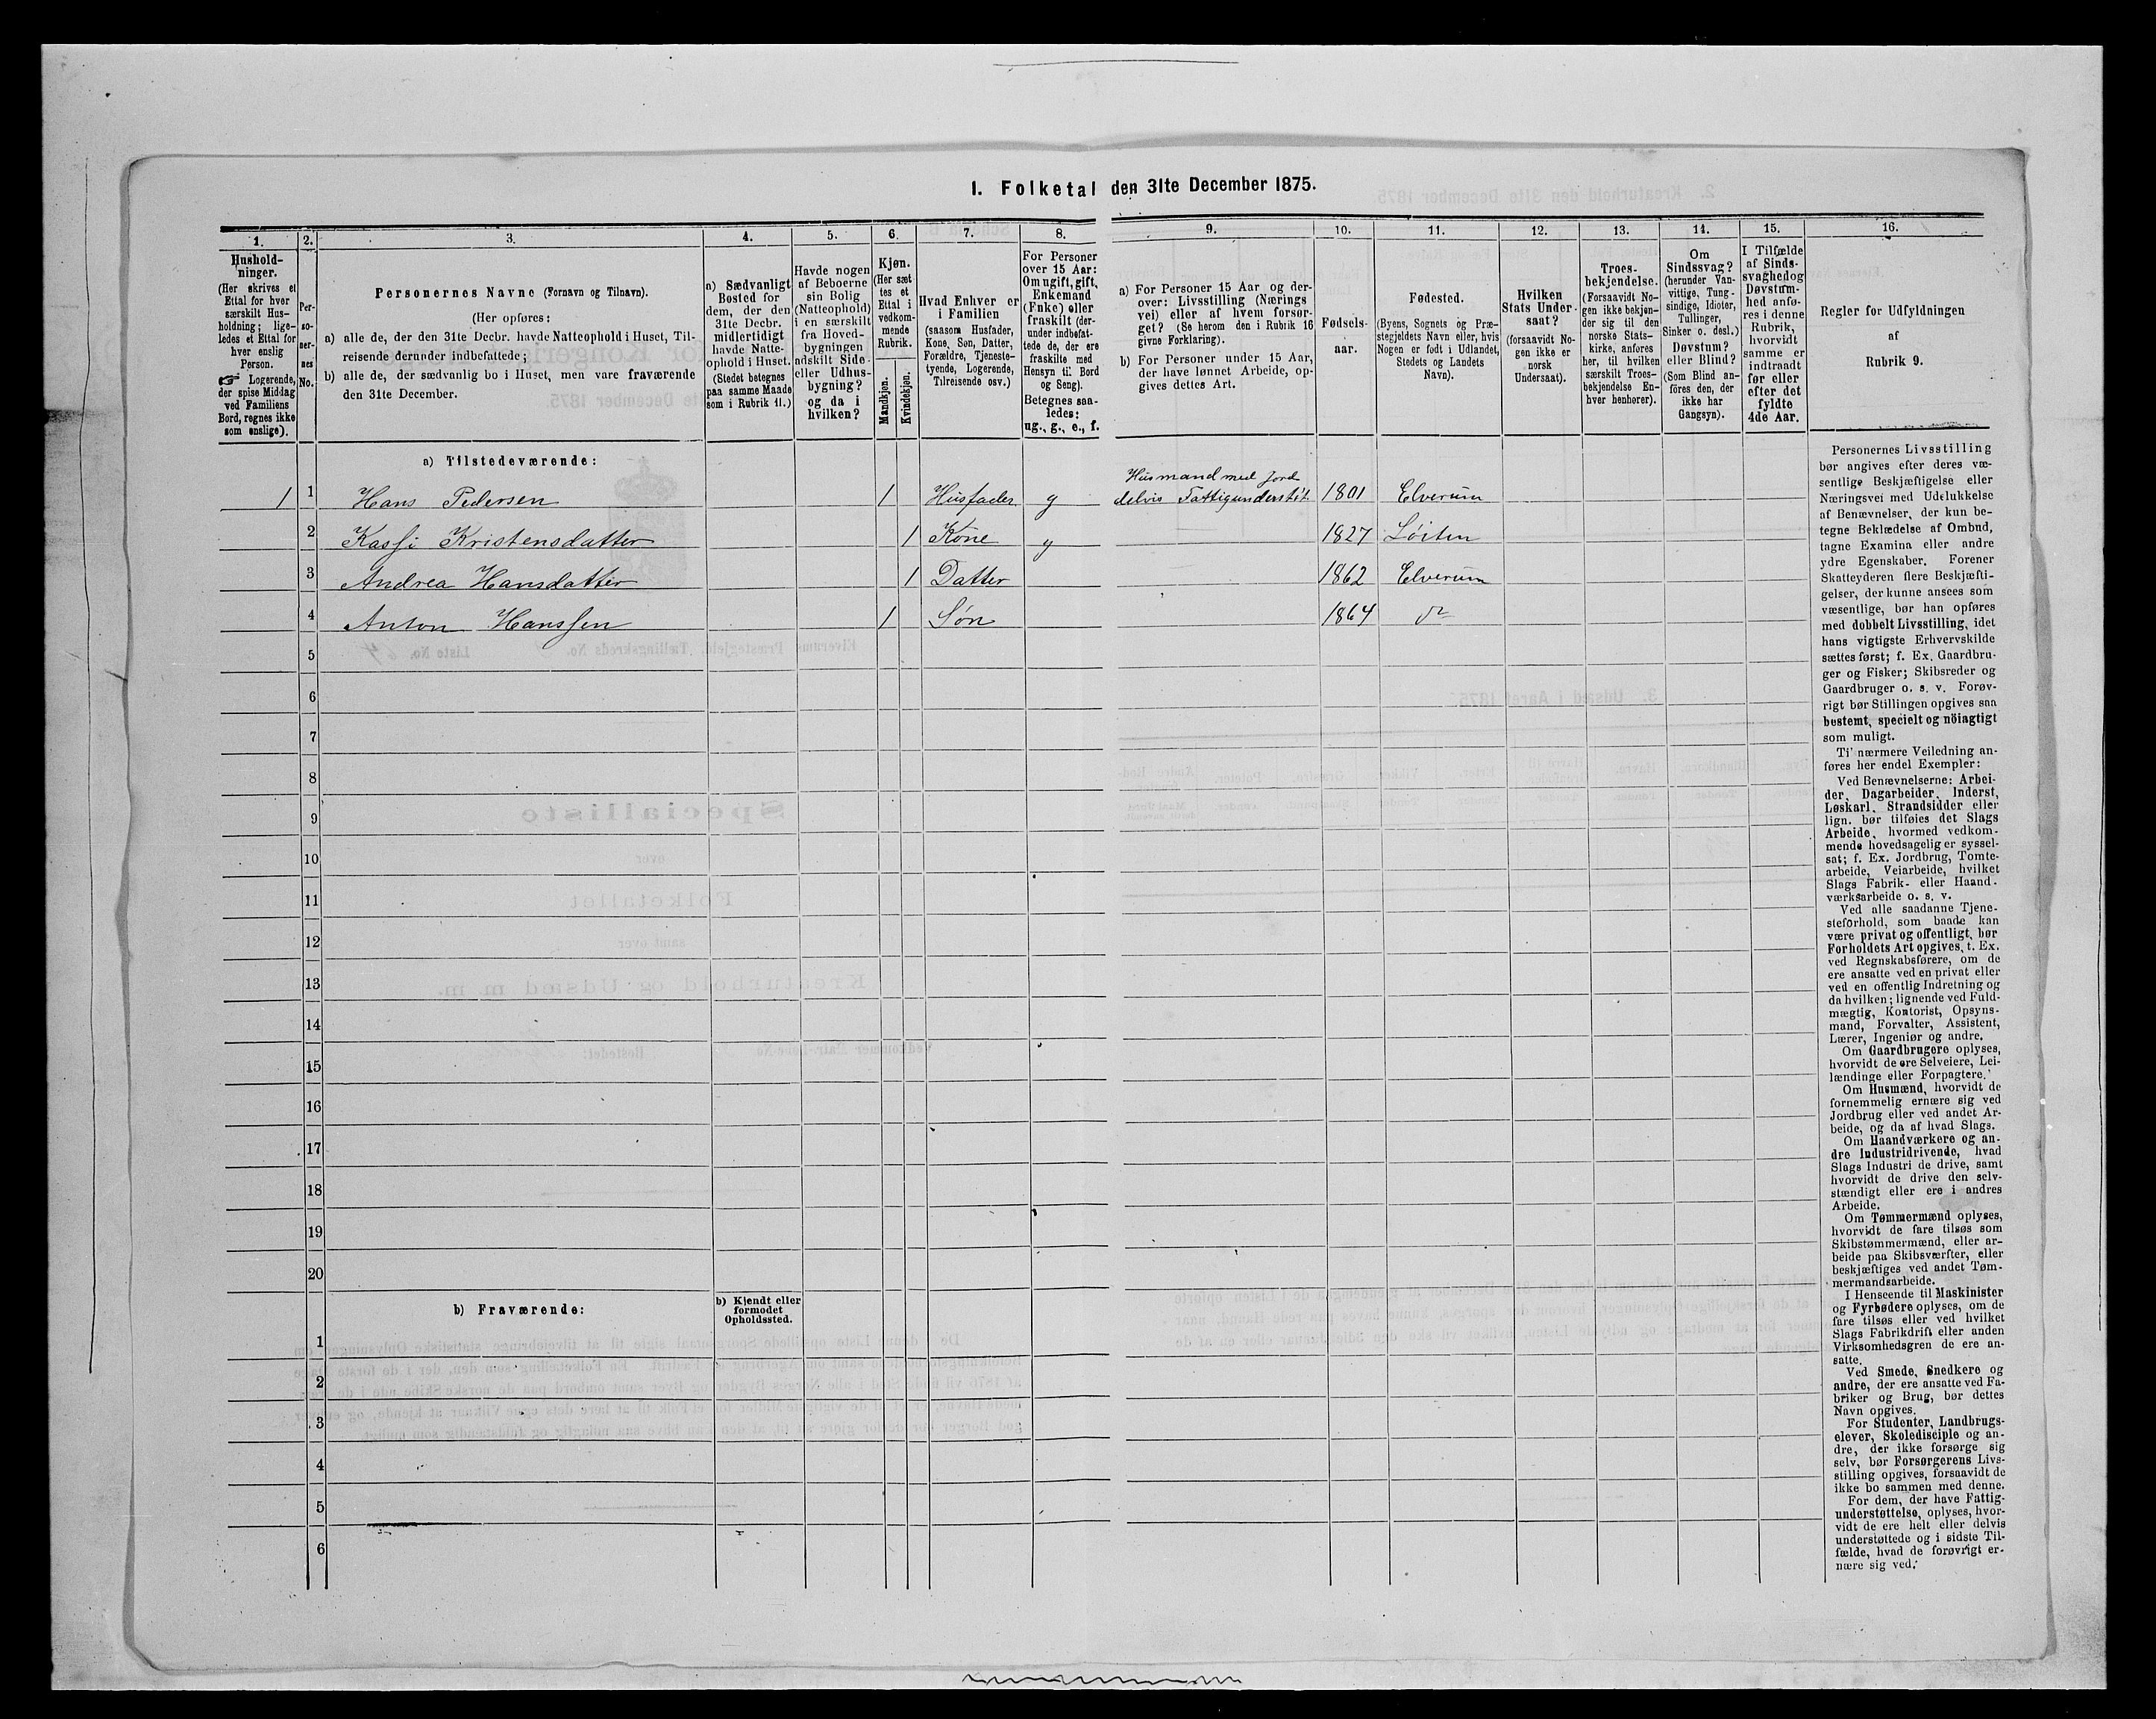 1. Folketal den 31te December 1875.
1.
2.
3.
4.
5.
6.
7.
8.
9.
10.
11.
12.
13.
14.
15.
16.
Hushold-
ninger.
(Her skrives et
Ettal for hver
særskilt Hus-
holdning; lige-
ledes et Ettal for
hver enslig
Person.
☞ Logerende,
der spise Middag
ved Familiens
Bord, regnes ikke
som enslige).
Per-
so-
ner-
nes
No.
Personernes Navne (Fornavn og Tilnavn).
(Her opføres:
a) alle de, der den 31te Decbr. havde Natteophold i Huset, Til-
reisende derunder indbefattede;
b) alle de, der sædvanlig bo i Huset, men vare fraværende
den 31te December.
a) Sædvanligt
Bosted for
dem, der den
31te Decbr.
midlertidigt
havde Natte-
ophold i Huset.
(Stedet betegnes
paa samme Maade
som i Rubrik 11.)
Havde nogen
af Beboerne
sin Bolig
(Natteophold)
i en særskilt
fra Hoved-
bygningen
adskilt Side-
eller Udhus-
bygning?
og da i
hvilken?
Kjøn.
(Her sæt-
tes et
Ettal i
vedkom-
mende
Rubrik.
Mandkjøn.
Kvindekjøn.
Hvad Enhver er
i Familien
(saasom Husfader,
Kone, Søn, Datter,
Forældre, Tjeneste-
tyende, Logerende,
Tilreisende osv.)
For Personer
over 15 Aar:
Om ugift, gift,
Enkemand
(Enke) eller
fraskilt (der-
under indbefat-
tede de, der ere
fraskilte med
Hensyn til Bord
og Seng).
Betegnes saa-
ledes:
ug., g., e., f.
a) For Personer 15 Aar og der-
over: Livsstilling (Nærings
vei) eller af hvem forsør-
get? (Se herom den i Rubrik 16
givne Forklaring).
b) For Personer under 15 Aar,
der have lønnet Arbeide, op-
gives dettes Art.
Fødsels-
aar.
Fødested.
(Byens, Sognets og Præ-
stegjeldets Navn eller, hvis
Nogen er født i Udlandet,
Stedets og Landets
Navn).
Hvilken
Stats Under-
saat?
(forsaavidt No-
gen ikke er
norsk
Undersaat).
Troes-
bekjendelse.
(Forsaavidt No-
gen ikke bekjen-
der sig til den
norske Stats-
kirke, anføres
her, til hvilken
særskilt Troes-
bekjendelse En-
hver henhører).
Om
Sindssvag?
(herunder Van-
vittige, Tung-
sindige, Idioter,
Tullinger,
Sinker o. desl.)
Døvstum?
eller Blind?
(Som Blind an-
føres den, der
ikke har
Gangsyn).
I Tilfælde
af Sinds-
svaghed og
Døvstum-
hed anfø-
res i denne
Rubrik,
hvorvidt
samme er
indtraadt
før eller
efter det
fyldte
4de Aar.
Regler for Udfyldningen
af
Rubrik 9.
a) Tilstedeværende:
Husmand med Jord
1 1 Hans Pedersen 1 Husfader g delvis Fattigunderstøt. 1801 Elverum
2 Kassi Kristensdatter 1 Kone g 1827 Løiten
3 Andrea Hansdatter 1 Datter 1862 Elverum
4 Anton Hanssen 1 Søn 1864 do
5
6
7
8
9
10
11
12
13
14
15
16
17
18
19
20
b) Fraværende:
b) Kjendt eller
formodet
Opholdssted.
1
2
3
4
5
6
Personernes Livsstilling
bør angives efter deres væ-
sentlige Beskjæftigelse eller
Næringsvei med Udelukkelse
af Benævnelser, der kun be-
tegne Beklædelse af Ombud,
tagne Examina eller andre
ydre Egenskaber. Forener
Skatteyderen flere Beskjæfti-
gelser, der kunne ansees som
væsentlige, bør han opføres
med dobbelt Livsstilling, idet
hans vigtigste Erhvervskilde
sættes først; f. Ex. Gaardbru-
ger og Fisker; Skibsreder og
Gaardbruger o. s. v. Forøv-
rigt bør Stillingen opgives saa
bestemt, specielt og nöiagtigt
som muligt.
Til nærmere Veiledning an-
føres her endel Exempler:
Ved Benævnelserne: Arbei-
der, Dagarbeider, Inderst,
Løskarl, Strandsidder eller
lign. bør tilføies det Slags
Arbeide, hvormed vedkom-
mende hovedsagelig er syssel-
sat; f. Ex. Jordbrug, Tomte-
arbeide, Veiarbeide, hvilket
Slags Fabrik- eller Haand-
værksarbeide o. s. v.
Ved alle saadanne Tjene-
steforhold, som baade kan
være privat og offentligt, bør
Forholdets Art opgives, t. Ex.
ved Regnskabsførere, om de
ere ansatte ved en privat eller
ved en offentlig Indretning og
da hvilken; lignende ved Fuld-
mægtig, Kontorist, Opsyns-
mand, Forvalter, Assistent,
Lærer, Ingeniør og andre.
Om Gaardbrugere oplyses,
hvorvidt de ere Selveiere, Lei-
lændinge eller Forpagtere.
Om Husmænd, hvorvidt de
fornemmelig ernære sig ved
Jordbrug eller ved andet Ar-
beide, og da af hvad Slags.
Om Haandværkere og an-
dre Industridrivende, hvad
Slags Industri de drive, samt
hvorvidt de drive den selv-
stændigt eller ere i andres
Arbeide.
Om Tømmermænd oplyses,
hvorvidt de fare tilsøs som
Skibstømmermænd, eller ar-
beide paa Skibsværfter, eller
beskjæftiges ved andet Tøm-
mermandsarbeide.
I Henseende til Maskinister
og Fyrbødere oplyses, om de
fare tilsøs eller ved hvilket
Slags Fabrikdrift eller anden
Virksomhedsgren de ere an-
satte.
Ved Smede, Snedkere og
andre, der ere ansatte ved Fa-
briker og Brug, bør dettes
Navn opgives.
For Studenter, Landbrugs-
elever, Skoledisciple og an-
dre, der ikke forsørge sig
selv, bør Forsørgerens Livs-
stilling opgives, forsaavidt de
ikke bo sammen med denne.
For dem, der have Fattig-
understøttelse, oplyses, hvor-
vidt de ere helt eller delvis
understøttede og i sidste Til-
fælde, hvad de forøvrigt er-
nære sig ved.